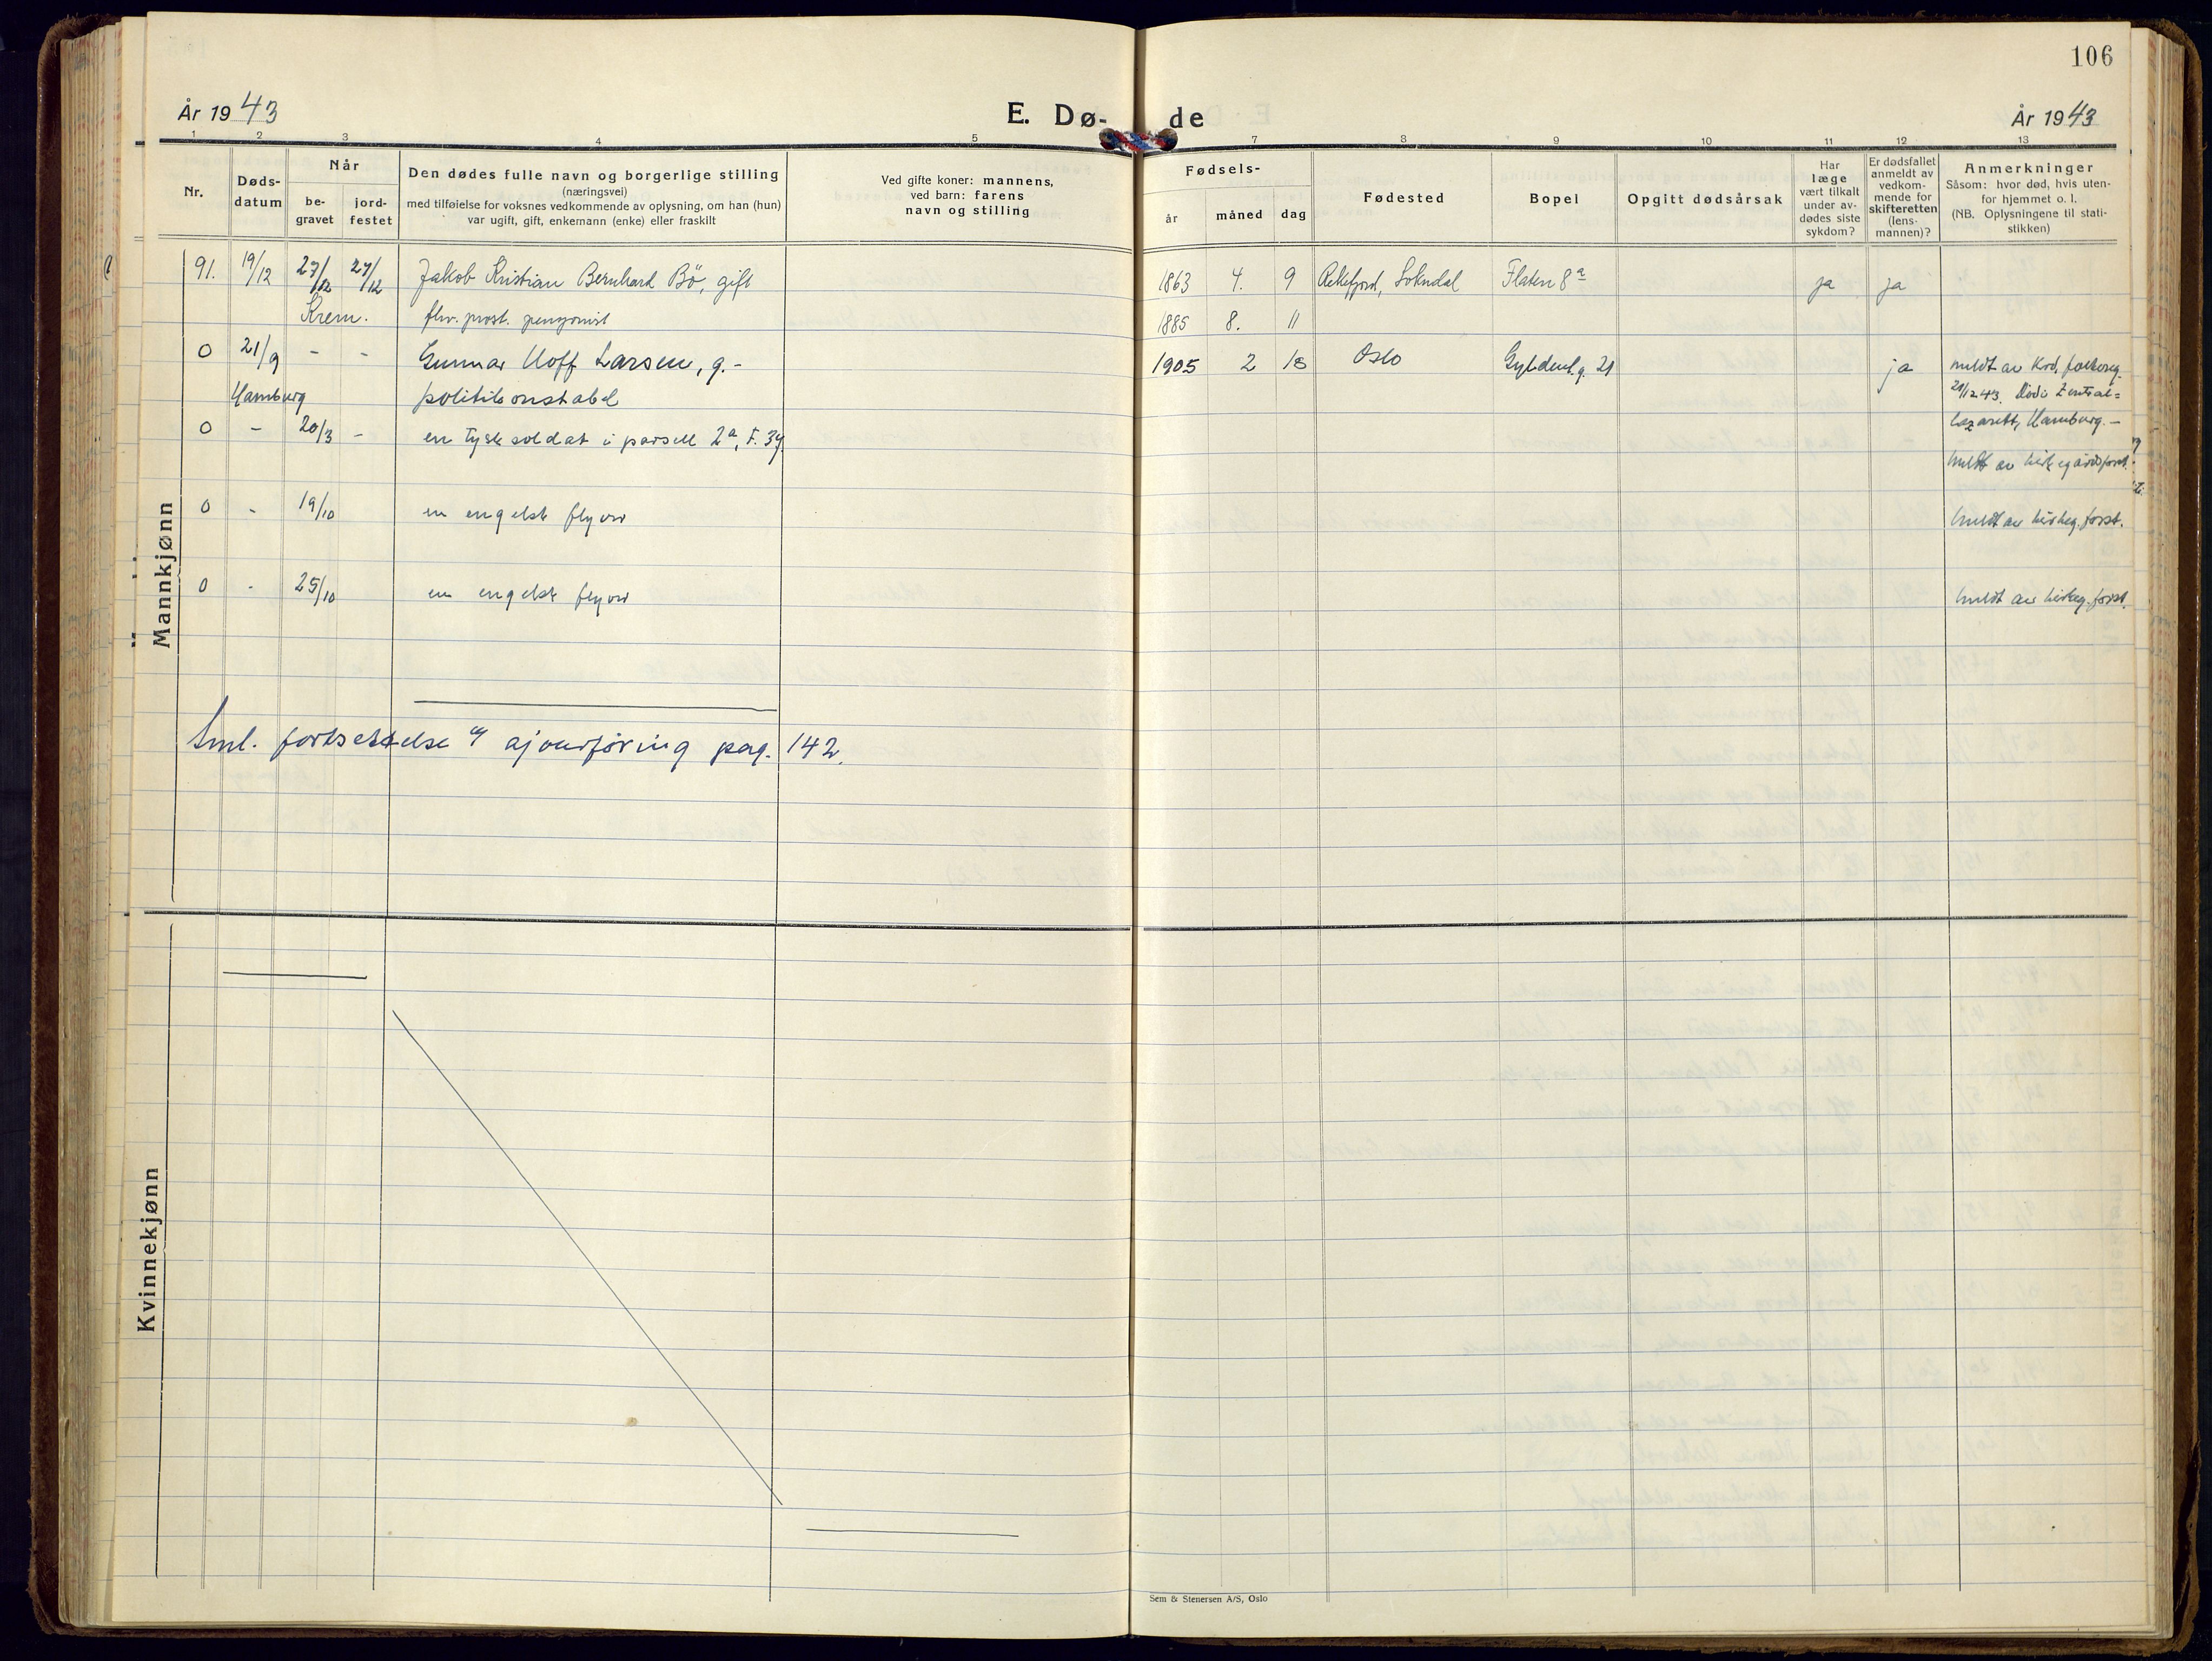 106
År 1943
E. Dø-
de
År 1943
1 2 3 4 5
7 8 9 10 11 12 13
Nr.
Døds-
datum
Når
be-
gravet
jord-
festet
Den dødes fulle navn og borgerlige stilling
(næringsvei)
med tilføielse for voksnes vedkommende av oplysning, om han (hun)
var ugift, gift, enkemann (enke) eller fraskilt
Ved gifte koner: mannens,
ved barn: farens
navn og stilling
Fødsels-
år
måned
dag
Fødested
Bopel
Opgitt dødsårsak
Har
læge
vært tilkalt
under av-
dødes siste
sykdom?
Er dødsfallet
anmeldt av
vedkom-
mende for
skifteretten
(lens-
mannen)?
Anmerkninger
Såsom: hvor død, hvis uten-
for hjemmet o. l.
(NB. Oplysningene til stati-
stikken)
Mannkjønn
91. 19/12 27/12 27/12 Jakob Kristian Bernhard Bö, gift 1863 4. 9 Rekefjord, Sokndal Flaten 8a ja ja
Krem. fhv. post. pensjonist 1885 8. 11
0 21/9 - - Gunnar Hoff Larsen, g.- 1905 2 18 Oslo Gyldenl.g. 21 ja meldt av Krd. folkereg.
Hamburg politikonstabel 21/12 43. Död i Zentral=
lazarett, Hamburg.-
0 - 20/3 - en tysk soldat i parsell 2a, F. 39.
meldt av kirkegårdsforst.
0 - 19/10 en engelsk flyver meldt av kirkeg.forst.
0 - 25/10 en engelsk flyver meldt av kirkeg.forst.
Sml. fortsettelse og ajourföring pag. 142.
Kvinnekjønn
Sem & Stenersen A/S, Oslo